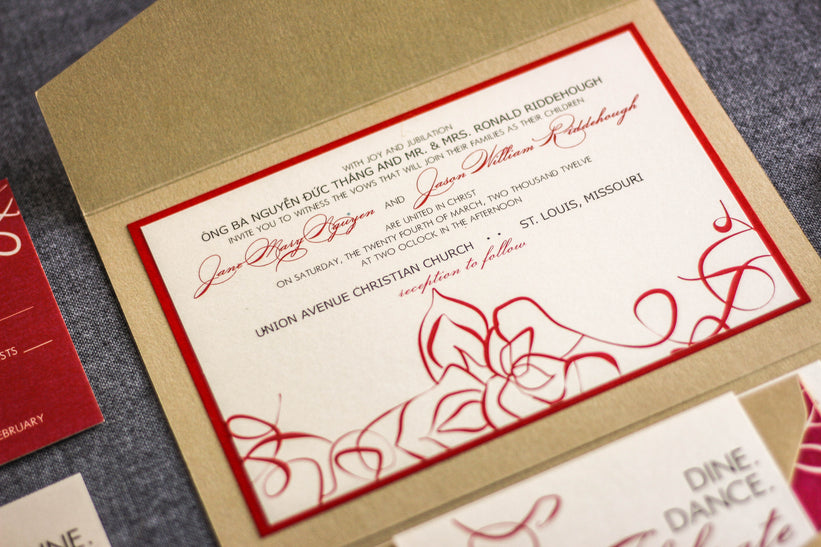 WITH JOY AND JUBILATION
ÔNG BÀ NGUYỄN ĐỨC THẮNG AND MR. & MRS. RONALD RIDDEHOUGH
INVITE YOU TO WITNESS THE VOWS THAT WILL JOIN THEIR FAMILIES AS THEIR CHILDREN
Jane Mary Nguyen AND Jason William Riddehough
ARE UNITED IN CHRIST
ON SATURDAY, THE TWENTY FOURTH OF MARCH, TWO THOUSAND TWELVE
AT TWO OCLOCK IN THE AFTERNOON
UNION AVENUE CHRISTIAN CHURCH · · ST. LOUIS, MISSOURI
reception to follow
DINE.
DANCE.